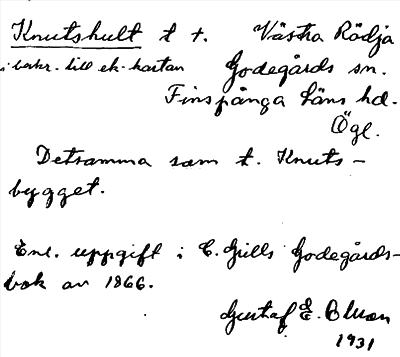 Knutshult t +. Västra Rödja
i beskr. till ek. kartan Godegårds sn.
Finspånga läns hd.
Ögl.
Detsamma som t. Knuts-
bygget.
Enl. uppgift i C. Grills Godegårds-
bok av 1866.
Gustaf E. Olsson
1931